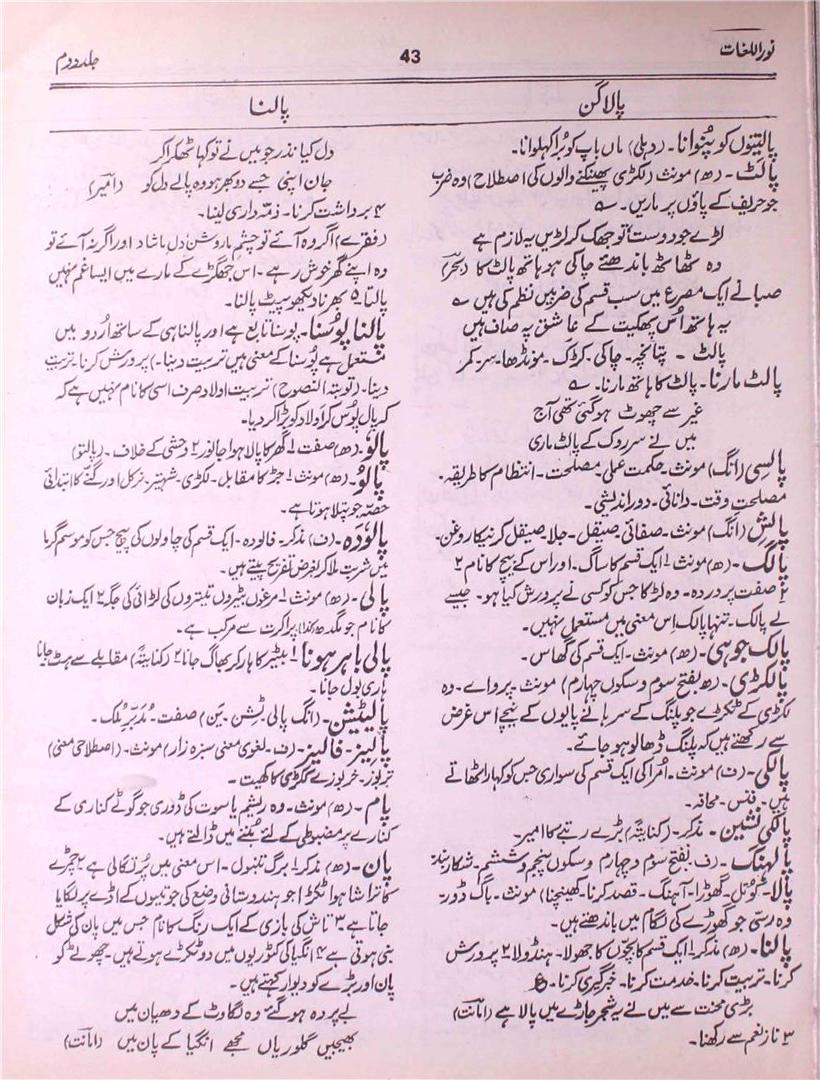 نوراللغات
43
جلد دوم
پالاگن
پالنا
پالیتوں کو پُنوانا۔ (دہلی) ماں باپ کو بُرا کہلوانا۔
پالَٹ۔ (ھ) مونث (لکڑی پھینکنے والوں کی اصطلاح) وہ ضرب
جو حریف کے پاؤں پر ماریں۔ ؎
لڑے جو دوست تو جھک کر لڑیں یہ لازم ہے
وہ ٹھاٹھ باندھتے چاکی ہو ہاتھ پالٹ کا (بحرؔ)
صبا نے ایک مصرع میں سب قسم کی ضربیں نظم کی ہیں ؎
یہ ہاتھ اُس پھکیت کے عاشق پہ صاف ہیں
پالٹ۔ پتانچہ۔ چاکی۔ کڑک۔ مونڈھا۔ سر۔ کمر
پالٹ مارنا۔ پالٹ کا ہاتھ مارنا۔ ؎
غیر سے چھوٹ ہوگئی تھی آج
میں نے سر روک کے پالٹ ماری
پالِسی (انگ) مونث۔ حکمت عملی۔ مصلحت۔ انتظام کا طریقہ۔
مصلحت وقت۔ دانائی۔ دور اندیشی۔
پالِش (انگ) مونث۔ صفائی۔ صیقل۔ جلا۔ صیقل کرنیکا روغن۔
پالَک۔ (ھ) مونث ۱ ایک قسم کا ساگ۔ اور اس کے بیج کا نام ۲
۲ صفت پروردہ۔ وہ لڑکا جس کو کسی نے پرورش کیا ہو۔ جیسے
لے پالک۔ تنہا پالک اس معنی میں مستعمل نہیں۔
پالک جوہی۔ (ھ) مونث۔ ایک قسم کی گھاس۔
پالکڑی۔ (ھ بفتح سوم و سکون چہارم) مونث۔ پروا ے۔ وہ
لکڑی کے ٹکڑے جو پلنگ کے سرہانے پایوں کے نیچے اس غرض
سے رکھتے ہیں کہ پلنگ ڈھالو ہو جائے۔
پالکی۔ (ف) مونث۔ اُمرا کی ایک قسم کی سواری جس کو کہار اٹھاتے
ہیں۔ فنس۔ محافہ۔
پالکی نشین۔ مذکر۔ (کنایۃً) بڑے رتبے کا امیر۔
پالہنگ۔ (ف بفتح سوم و چہارم و سکون پنجم و ششم۔
پالا۔ کوتل۔ گھوڑا۔ آہنگ۔ قصد کرنا۔ کھینچنا) مونث۔ باگ ڈور۔
وہ رسّی جو گھوڑے کی لگام میں باندھتے ہیں۔
پالنا۔ (ھ) مذکر ۱ ایک قسم کا بچّوں کا جھولا۔ ہنڈولا ۲ پرورش
کرنا۔ تربیت کرنا۔ خدمت کرنا۔ خبرگیری کرنا۔ ع
بڑی محنت سے میں نے یہ شجر جاڑے میں پالا ہے (امانتؔ)
۳ ناز نعم سے رکھنا۔
دل کیا نذر جو میں نے تو کہا ٹھکرا کر
جان اپنی جسے دوبھر ہو وہ پالے دل کو (امیرؔ)
۴ برداشت کرنا۔ ذمّہ داری لینا۔
(فقرے) اگر وہ آئے تو چشمِ ما روشن دلِ ما شاد اور اگر نہ آئے تو
وہ اپنے گھر خوش رہے۔ اس جھگڑے کے بارے میں ایسا غم نہیں
پالتا ۵ بھرنا دیکھو پیٹ پالنا۔
پالنا پوسنا۔ پوسنا تابع ہے اور پالنا ہی کے ساتھ اُردو میں
مستعمل ہے پُوسنا کے معنی ہیں تربیت دینا۔) پرورش کرنا۔ تربیت
دینا۔ (توبۃ النصوح) تربیت اولاد صرف اسی کا نام نہیں ہے کہ
کہ پال پوس کر اولاد کو بڑا کر دیا۔
پالَو۔ (ھ) صفت ۱ گھر کا پالا ہوا جانور ۲ وحشی کے خلاف۔ (پالتو)
پالُو۔ (ھ) مونث ۱ جڑ کا مقابل۔ لکڑی۔ شہتیر۔ نرکل اور گنّے کا ابتدائی
حصّہ جو پتلا ہوتا ہے۔
پالُودَہ۔ (ف) مذکر۔ فالودہ۔ ایک قسم کی چاولوں کی پیچ جس کو موسم گرما
میں شربت ملا کر بغرض تفریح پیتے ہیں۔
پالی۔ (ھ) مونث ۱ مرغوں بٹیروں تیتروں کی لڑائی کی جگہ ۲ ایک زبان
کا نام جو مگدھ (کذا) پراکرت سے مرکب ہے۔
پالی باہر ہونا ۱ بٹیر کا ہار کر بھاگ جانا ۲ (کنایتہً) مقابلے سے ہٹ جانا
ہاری بول جانا۔
پالیٹیشن۔ (انگ پالی ٹشن۔ ین) صفت۔ مُدبّر مُلک۔
پالیز۔ فالیز۔ (ف۔ لغوی معنی سبزہ زار) مونث۔ (اصطلاحی معنی)
تربوز۔ خربوزے ککڑی کا کھیت۔
پام۔ (ھ) مونث۔ وہ ریشم یا سوت کی ڈوری جو گوٹے کناری کے
کنارے پر مضبوطی کے لئے بُننے میں ڈالتے ہیں۔
پان۔ (ھ) مذکر ۱ برگ تنبول۔ اس معنی میں پُرتگالی ہے ۲ چمڑے
کا ترا شا ہوا ٹکڑا جو ہندوستانی وضع کی جوتیوں کے اڈے پر لگایا
جاتا ہے ۳ تاش کی بازی کے ایک رنگ کا نام جس میں پان کی شکل
بنی ہوتی ہے ۴ انگیا کی کٹوریوں میں دو ٹکڑے ہوتے ہیں۔ چھوٹے کو
پان اور بڑے کو دیوار کہتے ہیں۔
بے پردہ ہو گئے وہ لگاوٹ کے دھیان میں
بھیجیں گلوریاں مجھے انگیا کے پان میں (امانتؔ)